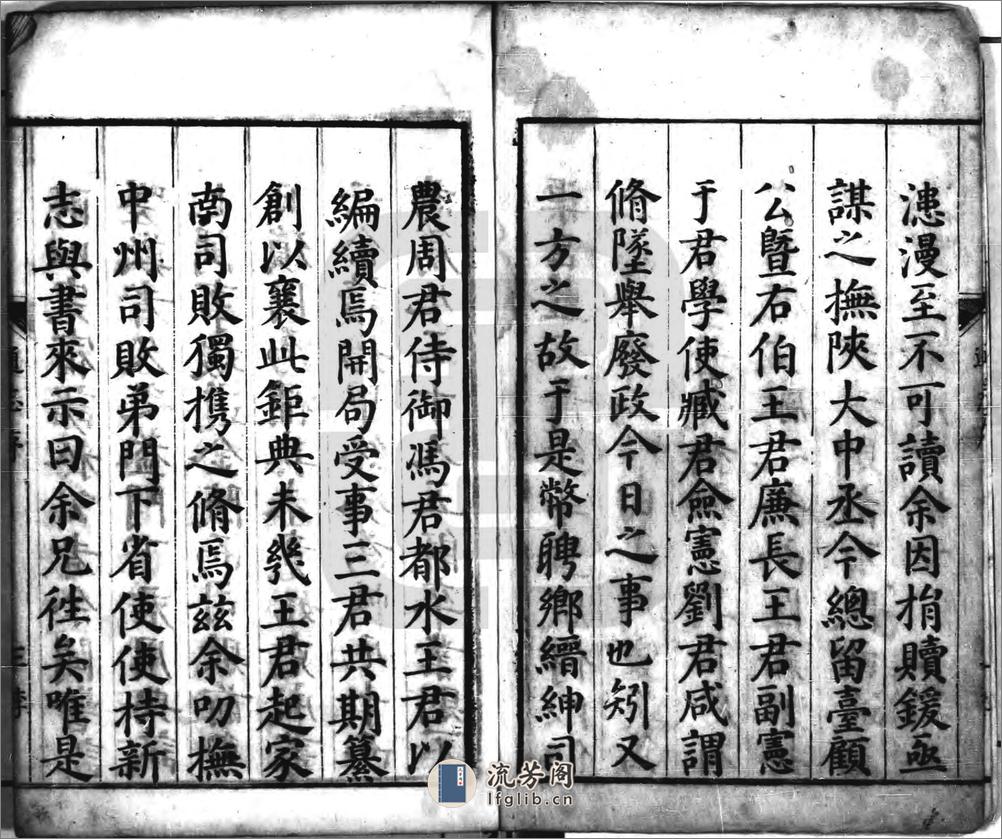 漶漫至不可讀余因捐贖鍰亟
謀之撫陝大中丞今總留臺顧
公暨右伯王君廉長王君副憲
于君學使臧君僉憲劉君咸謂
脩墜舉廢政今日之事也矧又
一方之故于是幣聘鄉縉紳司
農周君侍御馮君都水王君以
編續焉開局受事三君共期纂
創以襄此鉅典未幾王君起家
南司敗獨攜之脩焉茲余叨撫
中州司敗弟門下省使使持新
志與書來示曰余兄徃矣唯是
流芳阁
lfglib.cn